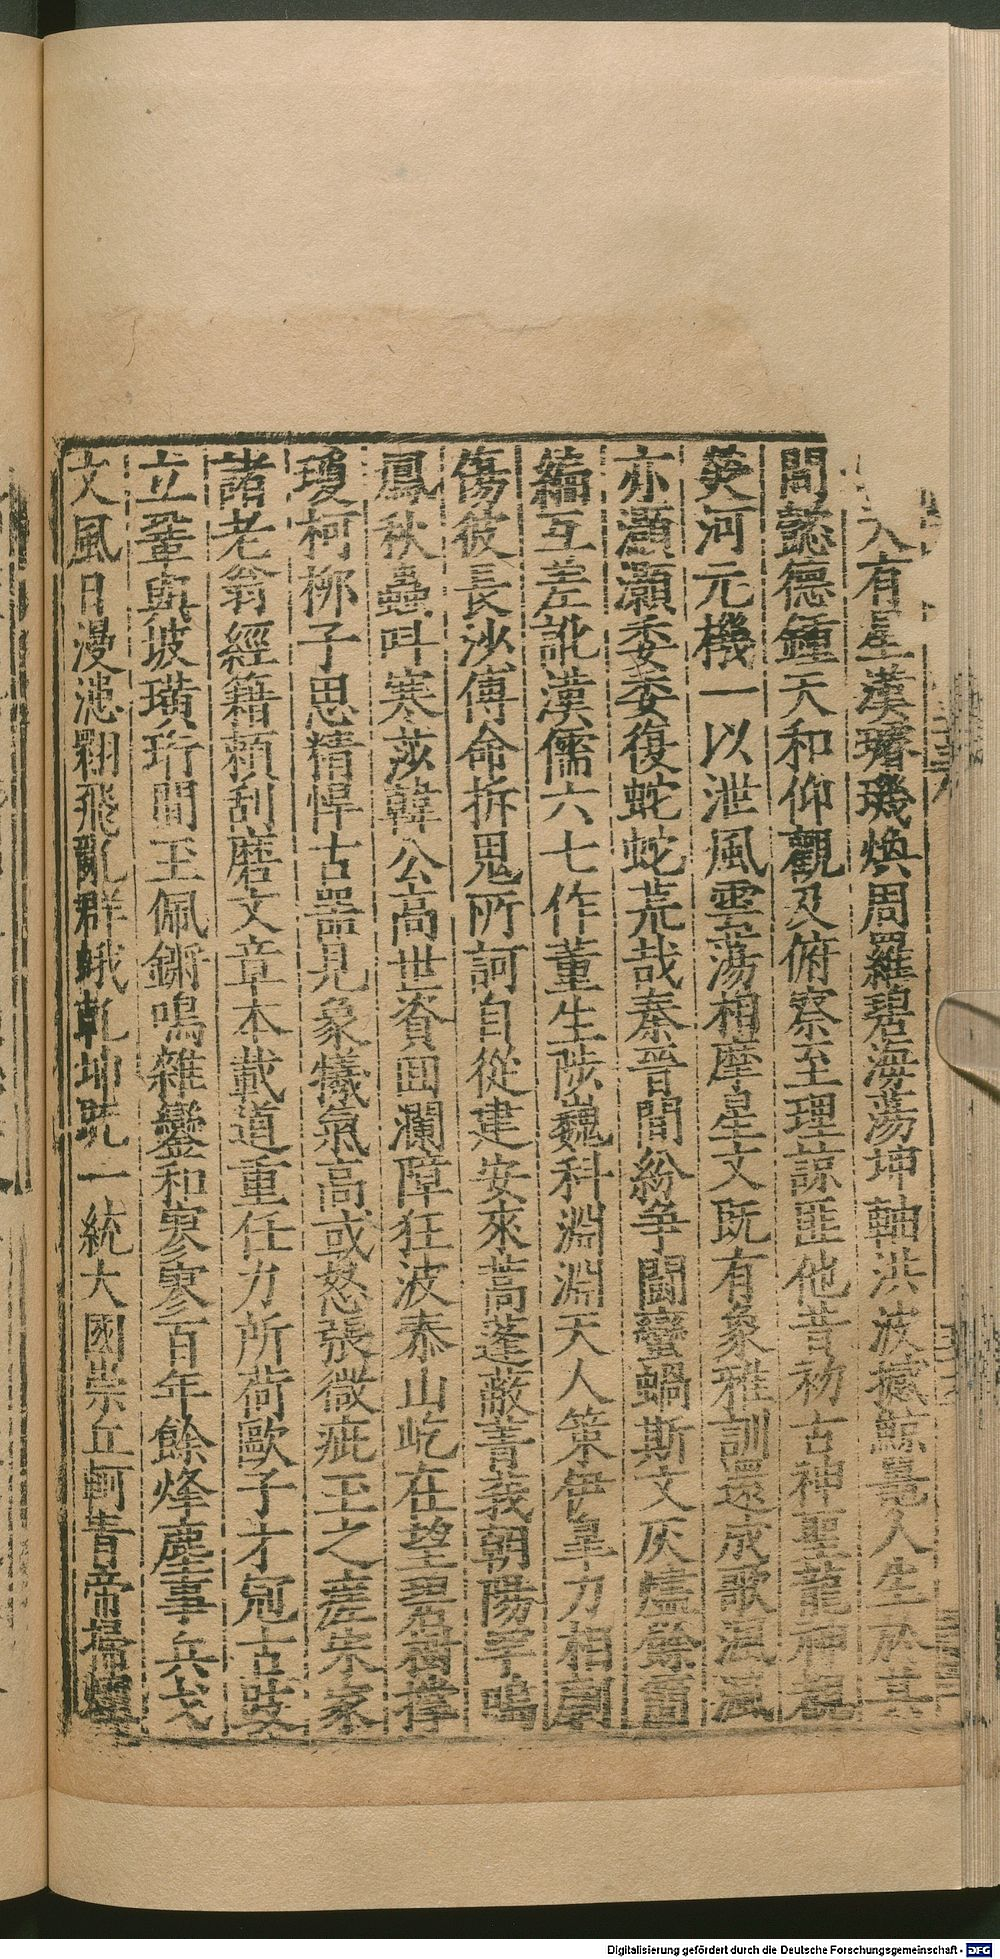 天有星漢璿璣煥周羅碧海蕩坤軸洪波撼鯨鼉人生於其
間懿德鍾天和仰觀及俯察至理諒匪他昔初古神聖龍神規
熒河元機一以泄風雲蕩相摩星文旣有象雅訓遂成歌渢渢
亦灝灝委委復蛇蛇荒哉秦晉間紛爭鬪蠻蝸斯文灰燼餘簡
編互差訛漢儒六七作董生陟巍科淵淵天人策伊皐力相劘
傷彼長沙傅命拆鬼所訶自從建安來蒿蓬蔽菁莪朝陽罕鳴
鳳秋蟲叫寒莎韓公高世資囬瀾障狂波泰山屹在望碧樹撐
瓊柯柳子思精悍古器見象犧氣高或怒張微疵玉之瘥宋家
諸老翁經籍頼刮磨文章本載道重任力所荷歐子才冠古蘇
立鞏與坡璜珩間玉佩鏘鳴雜鸞和寥寥百年餘烽塵事兵戈
文風日漫漶翾飛亂群蛾乾坤旣一統大國崇丘軻青帝掃
Digitalisierung gefördert durch die Deutsche Forschungsgemeinschaft - DFG